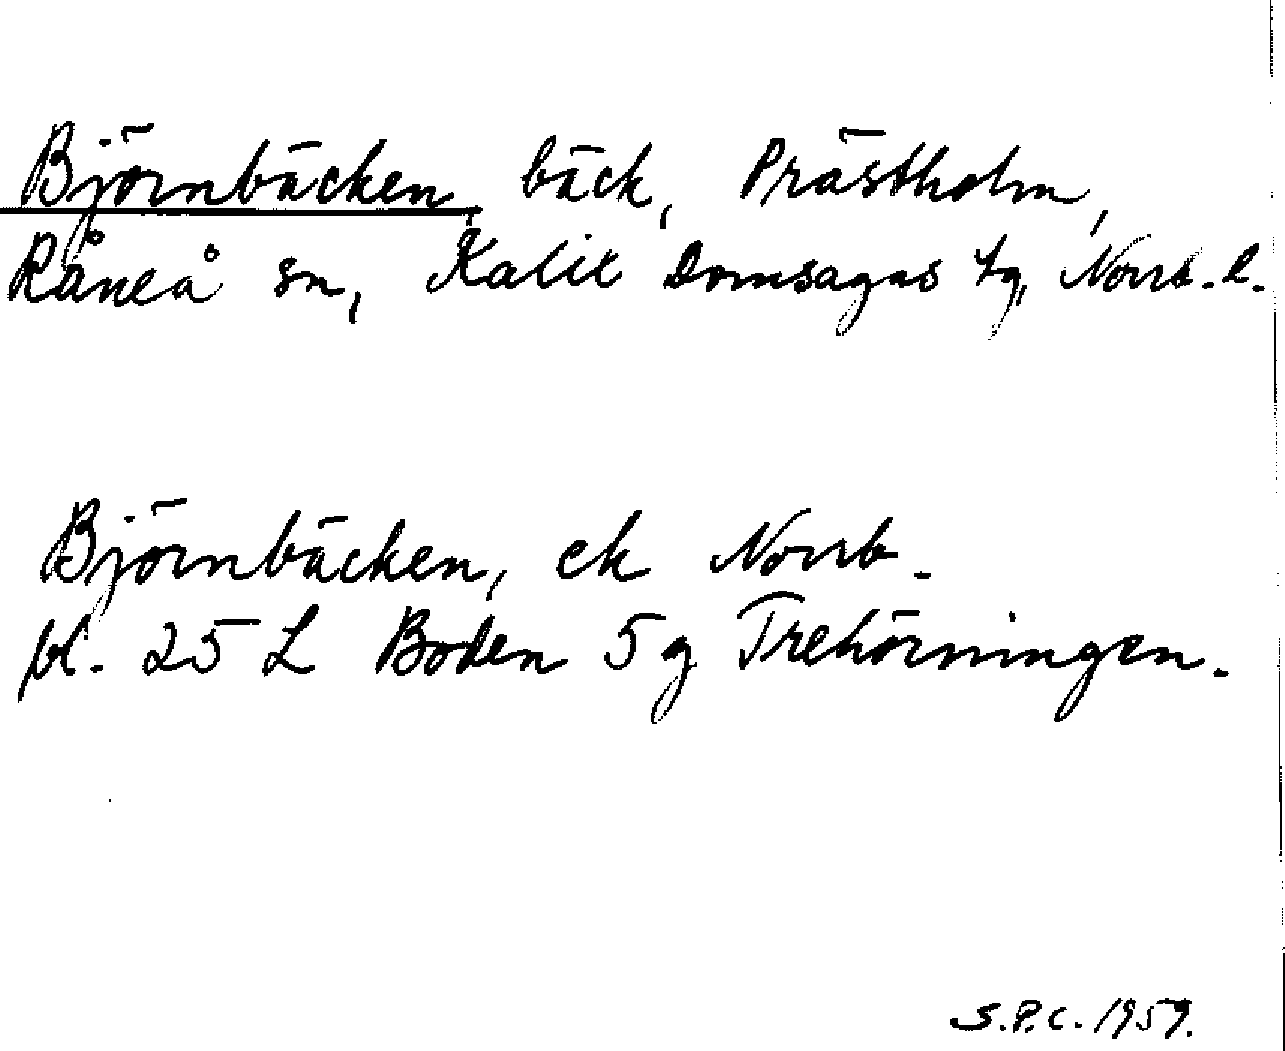 Björnbäcken, bäck, Prästholm,
Råneå sn, Kalix Domsagas tg, Norrb. l.
Björnbäcken, ek Norrb.
bl. 25 L Boden 5 g Trehörningen.
S.P.C. 1959.